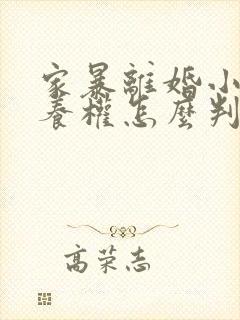 家暴離婚小
養權怎麼判
高荣志